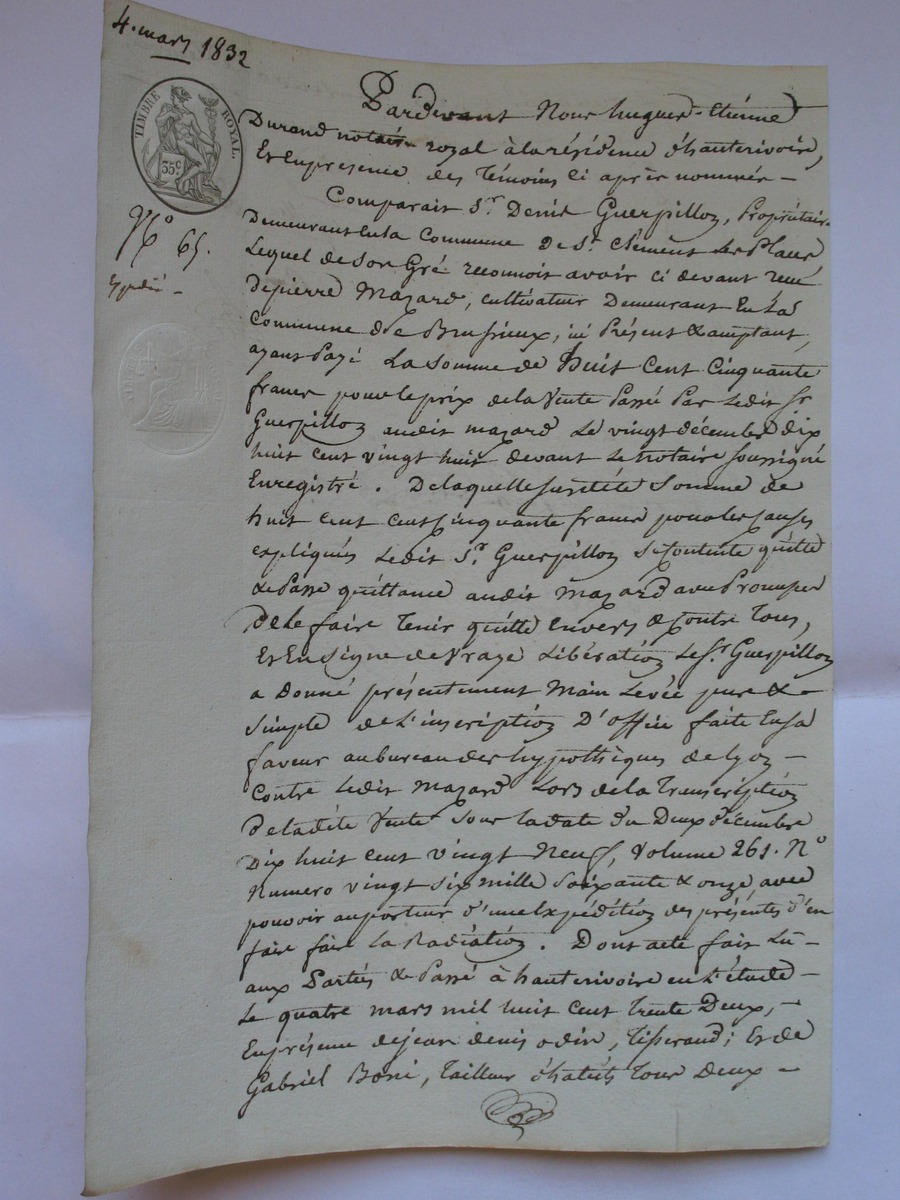 4. mars 1832
TIMBRE ROYAL.
35c
N° 65.
Pardevant Nous hugues-Etienne
Durand notaire royal à la résidence d'hauterivoire,
Et En presence des témoins ci après nommés -
Comparait Sr. Denis Guerpillon, Propriétaire
Demeurant En la Commune De St. Clément les Places
Lequel de Son Gré reconnoit avoir ci devant reçu
De pierre Mazard, cultivateur Demeurant En la
Commune de Brussieux, ici Présent & acceptant,
ayant Payé La Somme de huit Cent Cinquante
francs pour le prix de la Vente Passée Par Ledit Sr
Guerpillon audit mazard Le vingt décembre dix
huit cent vingt huit devant Le notaire Soussigné
Enregistré. De laquelle susditte Somme de
huit cent cent cinquante francs pour les causes
expliqués Ledit Sr. Guerpillon Se Contente quitte
& Passe quittance audit Mazard avec Promesse
De Le faire tenir quitte envers & Contre Tous,
Et En Signe de Vraye Libération Le Sr. Guerpillon
a Donné présentement Main Levée pure &
Simple de L'inscription D'office faite En sa
faveur au bureau des hypothèques de Lyon -
Contre Ledit Mazard Lors de la Transcription
De ladite Vente Sous la date du Deux décembre
Dix huit cent vingt Neuf, Volume 261. N°
Numero vingt six mille Soixante & onze, avec
pouvoir au porteur d'une Expédition des présentes d'en
faire faire La Radiation. Dont acte fait Lu -
aux Parties & Passé à hauterivoire en L'étude -
Le quatre mars mil huit Cent trente Deux, -
En présence de jean denis odin, Tisserand; Et de
Gabriel Boni, Tailleur d'habits Tous Deux -